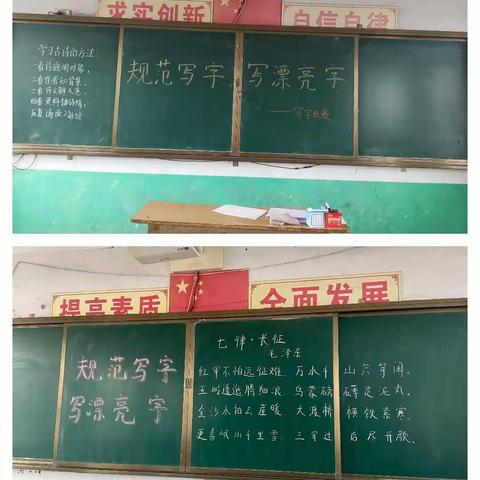 求实创新 自信自律
学习古诗的方法:
一看诗题明对象,
二看作者知背景,
三看诗文解大意,
四看资料悟诗情,
反复诵读入诗境
规范写字 写漂亮字
——写字比赛
提高素质 全面发展
规范写字
写漂亮字
七律·长征
毛泽东
红军不怕远征难,万水千山只等闲。
五岭逶迤腾细浪,乌蒙磅礴走泥丸。
金沙水拍云崖暖,大渡桥横铁索寒。
更喜岷山千里雪,三军过后尽开颜。